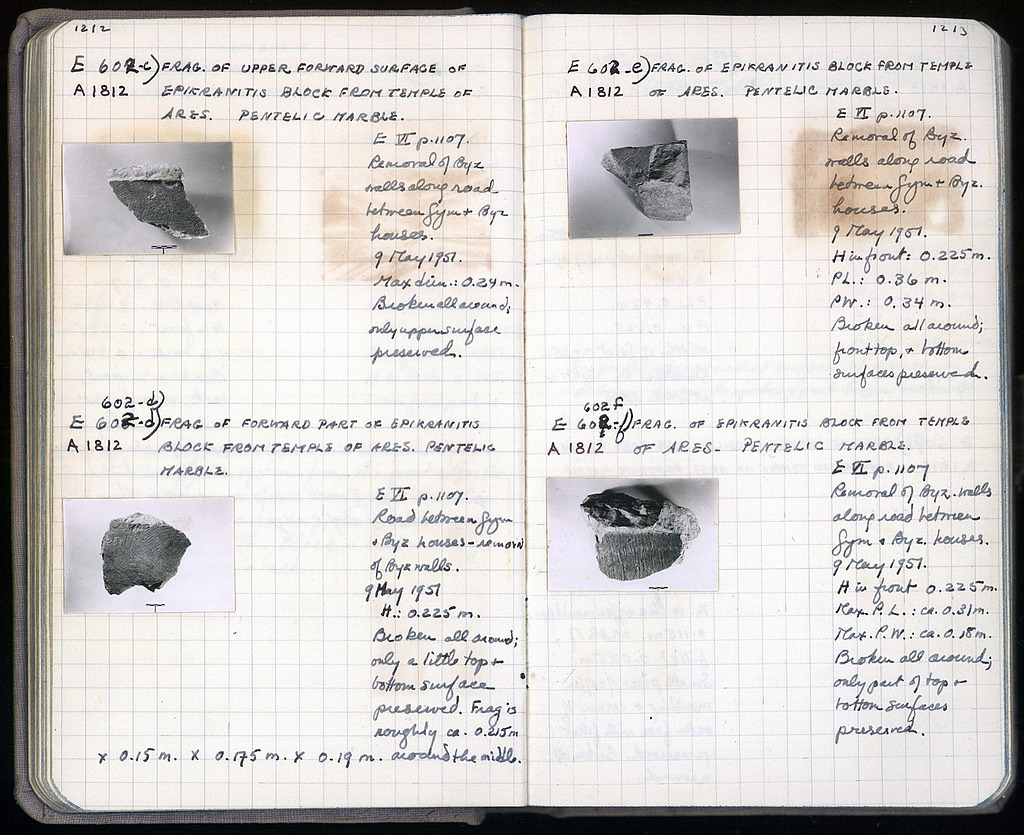 1212
E 602-c) FRAG. OF UPPER FORWARD SURFACE OF
A 1812 EPIKRANITIS BLOCK FROM TEMPLE OF
ARES. PENTELIC MARBLE.
E VI p. 1107.
Removal of Byz
walls along road
between Gym + Byz
houses.
9 May 1951.
Max dim.: 0.24 m.
Broken all around;
only upper surface
preserved.
602-d)
E 602-d) FRAG OF FORWARD PART OF EPIKRANITIS
A 1812 BLOCK FROM TEMPLE OF ARES. PENTELIC
MARBLE.
E VI p. 1107.
Road between Gym
+ Byz houses - removal
of Byz walls.
9 May 1951
H.: 0.225 m.
Broken all around;
only a little top +
bottom surface
preserved. Frag is
roughly ca. 0.215 m
x 0.15 m. x 0.175 m. x 0.19 m. around the middle.
1213
E 602-e) FRAG. OF EPIKRANITIS BLOCK FROM TEMPLE
A 1812 OF ARES. PENTELIC MARBLE.
E VI p. 1107.
Removal of Byz.
walls along road
between Gym + Byz.
houses.
9 May 1951.
H in front: 0.225 m.
PL.: 0.36 m.
PW.: 0.34 m.
Broken all around;
front top, + bottom
surfaces preserved.
602 f
E 602-f) FRAG. OF EPIKRANITIS BLOCK FROM TEMPLE
A 1812 OF ARES- PENTELIC MARBLE.
E VI p. 1107
Removal of Byz. walls
along road between
Gym + Byz. houses.
9 May 1951.
H in front 0.225 m.
Max. P. L.: ca. 0.31 m.
Max. P. W.: ca. 0.18 m.
Broken all around;
only part of top +
bottom surfaces
preserved.